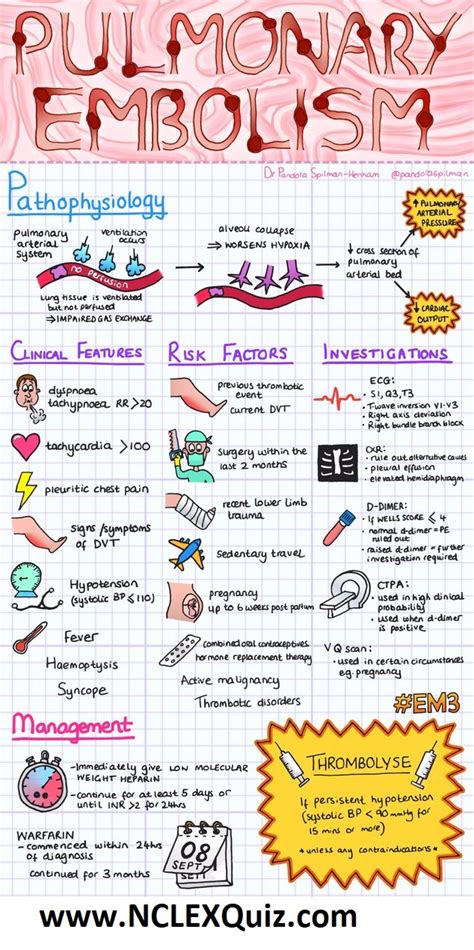 PULMONARY
EMBOLISM
Dr Pandora Spilman-Henham @pandoraspilman
Pathophysiology
pulmonary
arterial
system
ventilation
occurs
no perfusion
lung tissue is ventilated
but not perfused
⇒ IMPAIRED GAS EXCHANGE
alveoli collapse
⇒ WORSENS HYPOXIA
↓ cross section of
pulmonary
arterial bed
↑ PULMONARY
ARTERIAL
PRESSURE
↓ CARDIAC
OUTPUT
CLINICAL FEATURES
dyspnoea
tachypnoea RR >20
tachycardia >100
pleuritic chest pain
signs/symptoms
of DVT
Hypotension
(systolic BP ≤110)
Fever
Haemoptysis
Syncope
RISK FACTORS
previous thrombotic
event
current DVT
surgery within the
last 2 months
recent lower limb
trauma
sedentary travel
pregnancy
up to 6 weeks post partum
combined oral contraceptives
hormone replacement therapy
Active malignancy
Thrombotic disorders
INVESTIGATIONS
ECG:
• S1, Q3, T3
• T wave inversion V1-V3
• Right axis deviation
• Right bundle branch block
CXR:
• rule out alternative causes
• pleural effusion
• elevated hemidiaphragm
D-DIMER:
• if WELLS SCORE ≤ 4
• normal d-dimer = PE
ruled out
• raised d-dimer = further
investigation required
CTPA:
• used in high clinical
probability
• used when d-dimer
is positive
VQ scan:
• used in certain circumstances
eg. pregnancy
#EM3
Management
-Immediately give LOW MOLECULAR
WEIGHT HEPARIN
- continue for at least 5 days or
until INR >2 for 24hrs
WARFARIN
- commenced within 24hrs
of diagnosis
continued for 3 months
08
SEPT
THROMBOLYSE
If persistent hypotension
(systolic BP < 90 mmHg for
15 mins or more)
* unless any contraindications *
www.NCLEXQuiz.com